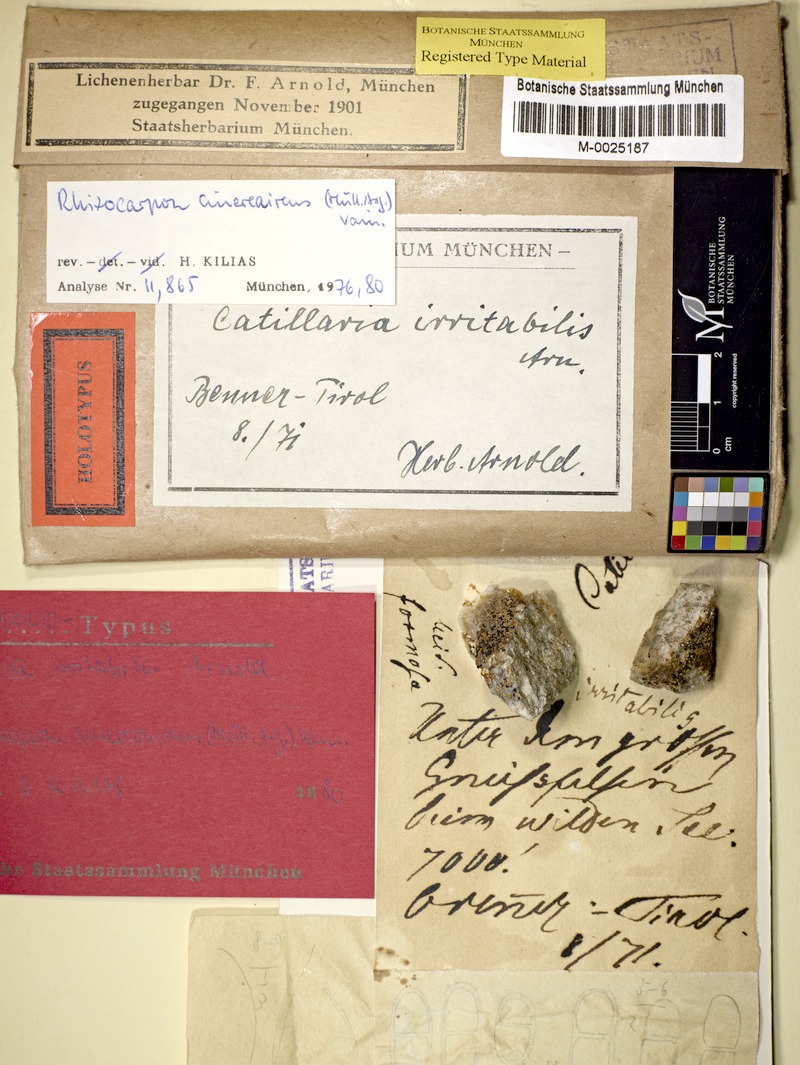 BOTANISCHE STAATSSAMMLUNG
MÜNCHEN
Registered Type Material
Lichenenherbar Dr. F. Arnold, München
zugegangen November 1901
Staatsherbarium München.
Botanische Staatssammlung München
M-0025187
Rhizocarpon cinereovirens (Müll. Arg.)
Vain.
rev. – det. – vid. H. KILIAS
Analyse Nr. 11,865 München, 1976, 80
UM MÜNCHEN –
Catillaria irritabilis
Arn.
Brenner - Tirol
8./71
Herb. Arnold.
HOLOTYPUS
BOTANISCHE
STAATSSAMMLUNG
MÜNCHEN
copyright reserved
0 1 2
cm
Typus
Arnold
(Müll. Arg.) Vain.
1980
he Staatssammlung München
formosa
irritabilis
Unter den großen
Gneißfelsen
beim wilden See.
7000'
Brenner - Tirol.
8/71.
5-6